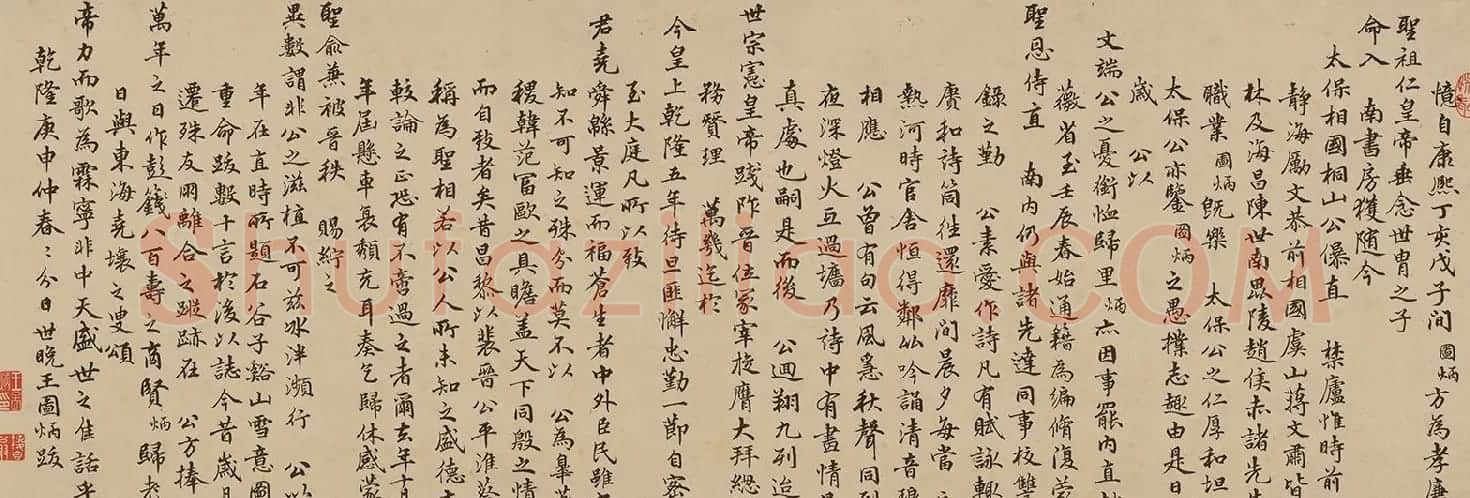 憶自康熙丁亥戊子間圖炳方為孝廉
聖祖仁皇帝垂念世胄之子
命入南書房獲隨今
太保相國桐山公儤直禁廬惟時前
靜海勵文恭前相國虞山蔣文肅皆
林及海昌陳世南毘陵趙侯赤諸先生
職業圖炳既樂太保公之仁厚和坦
太保公亦鑒圖炳之愚撲志趣由是日
歲公以
文端公之憂銜恤歸里炳六因事罷內直
薇省至壬辰春始通籍為編脩復蒙
聖恩侍直南內仍與諸先達同事校讐
錄之勤公素愛作詩凡有賦詠輒
賡和詩筒往還靡間晨夕每當
熱河時官舍恒得鄰竝吟誦清音
相應公曾有句云風急秋聲同
夜深燈火互過墻乃詩中有畫情
真處也嗣是而後公迴翔九列
世宗憲皇帝踐阼晉位冢宰旋膺大拜總
務贊理萬幾迄於
今皇上乾隆五年待旦匪懈忠勤一節自
至大庭凡所以致
君堯舜緜景運而福蒼生者中外臣民雖
知不可知之殊分而莫不以公為皐
稷韓范富歐之具瞻蓋天下同殷之情
而自致者矣昔昌黎以裴晉公平淮蔡
稱為聖相若以公人所未知之盛德
較論之正恐有不啻過之者爾玄年十月
年屆懸車裒顙充耳奏乞歸休感蒙
聖俞兼被晉秩賜紵之
異數謂非公之滋植不可茲冰泮瀕行公以
年在直時所題石谷子谿山雪意圖
重命跋數十言於後以誌今昔歲月
遷殊友朋離合之蹤跡在公方捧
萬年之日作彭籛八百壽之商賢炳歸老
日與東海堯壤之叟頌
帝力而歌為霖寧非中天盛世之佳話乎
乾隆庚申仲春春分日世晚王圖炳跋
Shufaziliao.COM